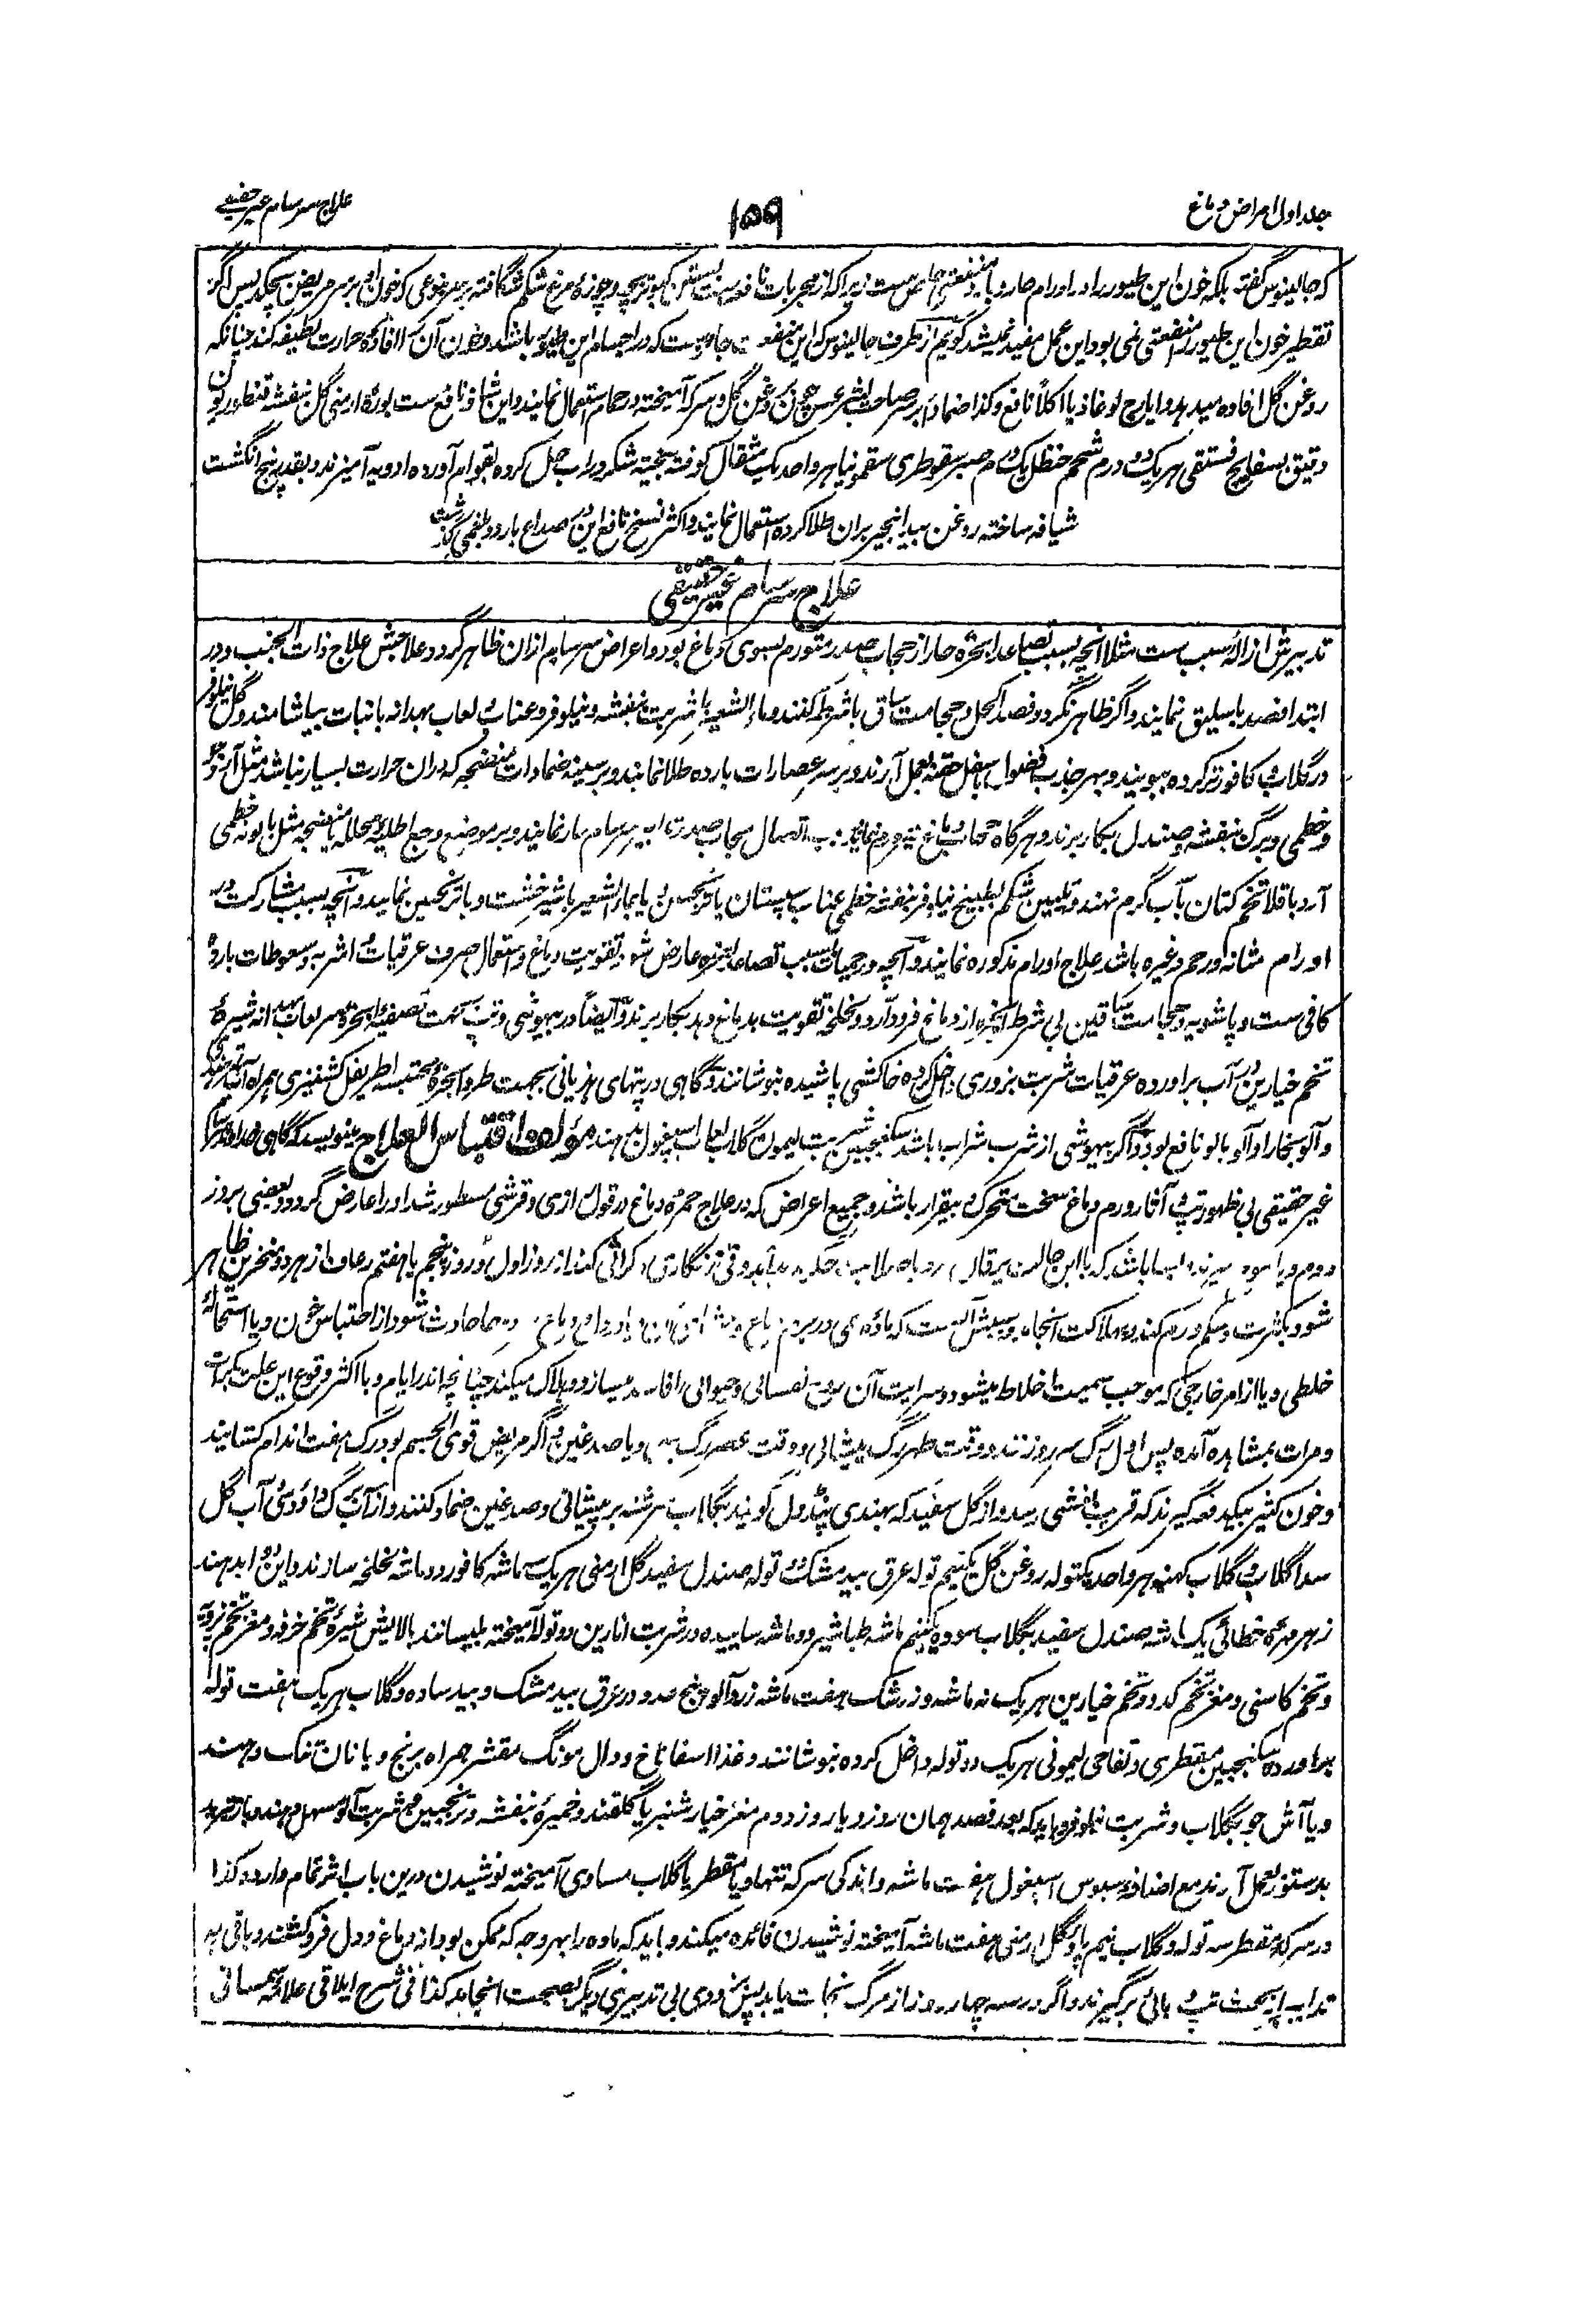 جلد اول امراض دماغ
۱۵۹
علاج سرسام غیر حقیقے
که جالینوس گفته بلکه خون این طیور را در اورام حار و بارد منفعتی خاص ست زیرا که از مجربات نافعه ست بستن کبوتر بچه و چوزهٔ مرغ شکم شگافته بر سر بنوعی که خون او بر سر مریض بچکد پس اگر
تقطیر خون این طیور را منفعتی نمی بود این عمل مفید نمیشد گوئیم از طرف جالینوس که این منفعت جاذبیست که در اجسام این طیور باشد و خون آن را افادهٔ حرارت لطیفه کند چنانکه
روغن گل افاده میدهد و ایارج لوغاذیا اکلاً نافع و کذا ضماداً بر سر صاحب لیثرغس چون روغن گل و سرکه آمیخته در حمام استعمال نمایند و این شیاف نافع ست بورهٔ ارمنی گل بنفشه قنطوریون
دقیق بسفایج فستقی هر یک دو درم شحم حنظل یک درم صبر سقوطری سقمونیا هر واحد یک مثقال کوفته بیخته شکر در آب حل کرده بقوام آورده ادویه آمیزند و بقدر پنج انگشت
شیافه ساخته روغن بیدانجیر بران طلا کرده استعمال نمایند و اکثر نسخ نافع این در صداع بارد بلغمی گذشت
علاج سرسام غیر حقیقی
تدبیرش ازالهٔ سبب ست مثلا آنچه بسبب تصاعد ابخرهٔ حار از حجاب صدر متورم بسوی دماغ بود و اعراض سرسام ازان ظاهر گردد علاجش علاج ذات الجنب و در
ابتدا فصد باسلیق نمایند و اگر ظاهر نگردد فصد اکحل و حجامت ساق با شرط کنند و ماء الشعیر با شربت بنفشه و نیلوفر و عناب و لعاب بهدانه با نبات بیاشامند و گل نیلوفر
در گلاب و کافور تر کرده ببویند و بهر جذب فضول باسفل حقنه بعمل آرند و بر سر عصارات بارده طلا نمایند و بر سینه ضمادات منضجه که دران حرارت بسیار نباشد مثل آرد جو
و خطمی و برگ بنفشه و صندل بکار برند و هرگاه حجاب دماغ نیز ورم نماید باتصال حجاب صدر تدابیر سرسام حار نمایند و بر موضع وجع اطلیهٔ محلله یا منضجه مثل بابونه خطمی
آرد باقلا تخم کتان بآب گرم نهند و تلیین شکم بطبیخ نیلوفر بنفشه خطمی عناب سپستان با ترنجبین یا بماء الشعیر با شیر خشت و یا ترنجبین نمایند و آنچه بسبب مشارکت
اورام مثانه و رحم و غیره باشد علاج اورام مذکوره نمایند و آنچه در حمیات بسبب تصاعد ابخره عارض شود تقویت دماغ و استعمال صرف عرقیات و اشربه و سعوطات بارده
کافی ست و پاشویه و حجامت ساقین بی شرط ابخره از دماغ فرود آرد و لخلخه تقویت بدماغ دهد بکار برند و ایضاً در بیهوشی و تپ بجهت تصفیهٔ ابخرهٔ سر لعاب بهدانه شیرهٔ
تخم خیارین در آب برآورده عرقیات شربت بزوری داخل کرده خاکشی پاشیده بنوشانند و گاهی در تپهای هذیانی بجهت طرد ابخرهٔ محتبسه اطریفل کشنیزی همراه آب تمر هندی
و آلو بخارا و آلو بالو نافع بود و اگر بیهوشی از شرب شراب باشد سکنجبین شربت لیمون گلاب لعاب اسپغول بدهند مؤلف اقتباس العلاج مینویسد که گاهی صداع و سرسام
غیر حقیقی بی ظهور تپ و آثار ورم دماغ سخت متحرک و بیقرار باشد و جمیع اعراض که در علاج حمرهٔ دماغ در قول رازی و قرشی مسطور شد او را عارض گردد و بعضی بروز
دوم و یا سوم میرند و بسا باشد که با این حالت یرقان
شود و بکثرت و شکم ورم کند و بهلاکت انجامد و سببش آنست که مادهٔ حادث شود از احتباس خون و یا استحالهٔ
خلطی و یا از امر خارجی که موجب سمیت اخلاط میشود و سرایت آن روح نفسانی و حیوانی را فاسد میسازد و هلاک میکند چنانچه اندر ایام وبا اکثر وقوع این علت بکرات
و مرات بمشاهده آمده پس اول رگ سر روزند و وقت ظهر رگ پیشانی و وقت عصر رگ و یا صدغین و اگر مریض قوی الجسم بود رگ هفت اندام کشایند
و خون کثیر بیکدفعه گیرند که قریب بغشی رسد و از گل سفید که بهندی پنڈول گویند بگلاب سرشته بر پیشانی و صدغین ضماد کنند و از آب برگ داؤدی آب گل
سدا گلاب و گلاب کهنه هر واحد یکتوله روغن گل یکنیم توله عرق بید مشک دو توله صندل سفید گل ارمنی هر یک سه ماشه کافور دو ماشه لخلخه سازند و این دوا بدهند
زهر مهرهٔ خطائی یک ماشه صندل سفید بگلاب سوده یکنیم ماشه طباشیر دو ماشه ساییده در شربت انارین دو توله آمیخته بلیسانند بالایش شیرهٔ تخم خرفه و مغز تخم تربز
و تخم کاسنی و مغز تخم کدو و تخم خیارین هر یک نه ماشه و زرشک هفت ماشه زرد آلو پنج عدد در عرق بید مشک و بید ساده و گلاب هر یک هفت توله
برآورده سکنجبین مقطری و تفاحی لیمونی هر یک دو توله داخل کرده بنوشانند و غذا اسفاناخ و دال مونگ مقشر همراه برنج و یا نان تنک دهند
و یا آش جو بگلاب و شربت نیلوفر و باید که بعد فصد همان روز و یا روز دوم مغز خیار شنبر یا گلقند و خمیرهٔ بنفشه و ترنجبین و شربت آلو مسهل دهند و باز تبرید
بدستور بعمل آرند مع اضافهٔ سبوس اسپغول هفت ماشه و اندکی سرکه تنها و یا مقطر با گلاب مساوی آمیخته نوشیدن درین باب اثر تمام دارد و کذا
در سرکهٔ مقطر سه توله و گلاب نیم پاؤ گل ارمنی هفت ماشه آمیخته نوشیدن فائده میکند و باید که ماده را بهر وجه که ممکن بود از دماغ و دل فروکشند و باقی
تدابیر از بحث تپ وبائی برگیرند و اگر در سه چهار روز از مرگ نجات یابد پس بزودی بی تدبیری دیگر بصحت انجامد کذا فی شرح ایلاقی